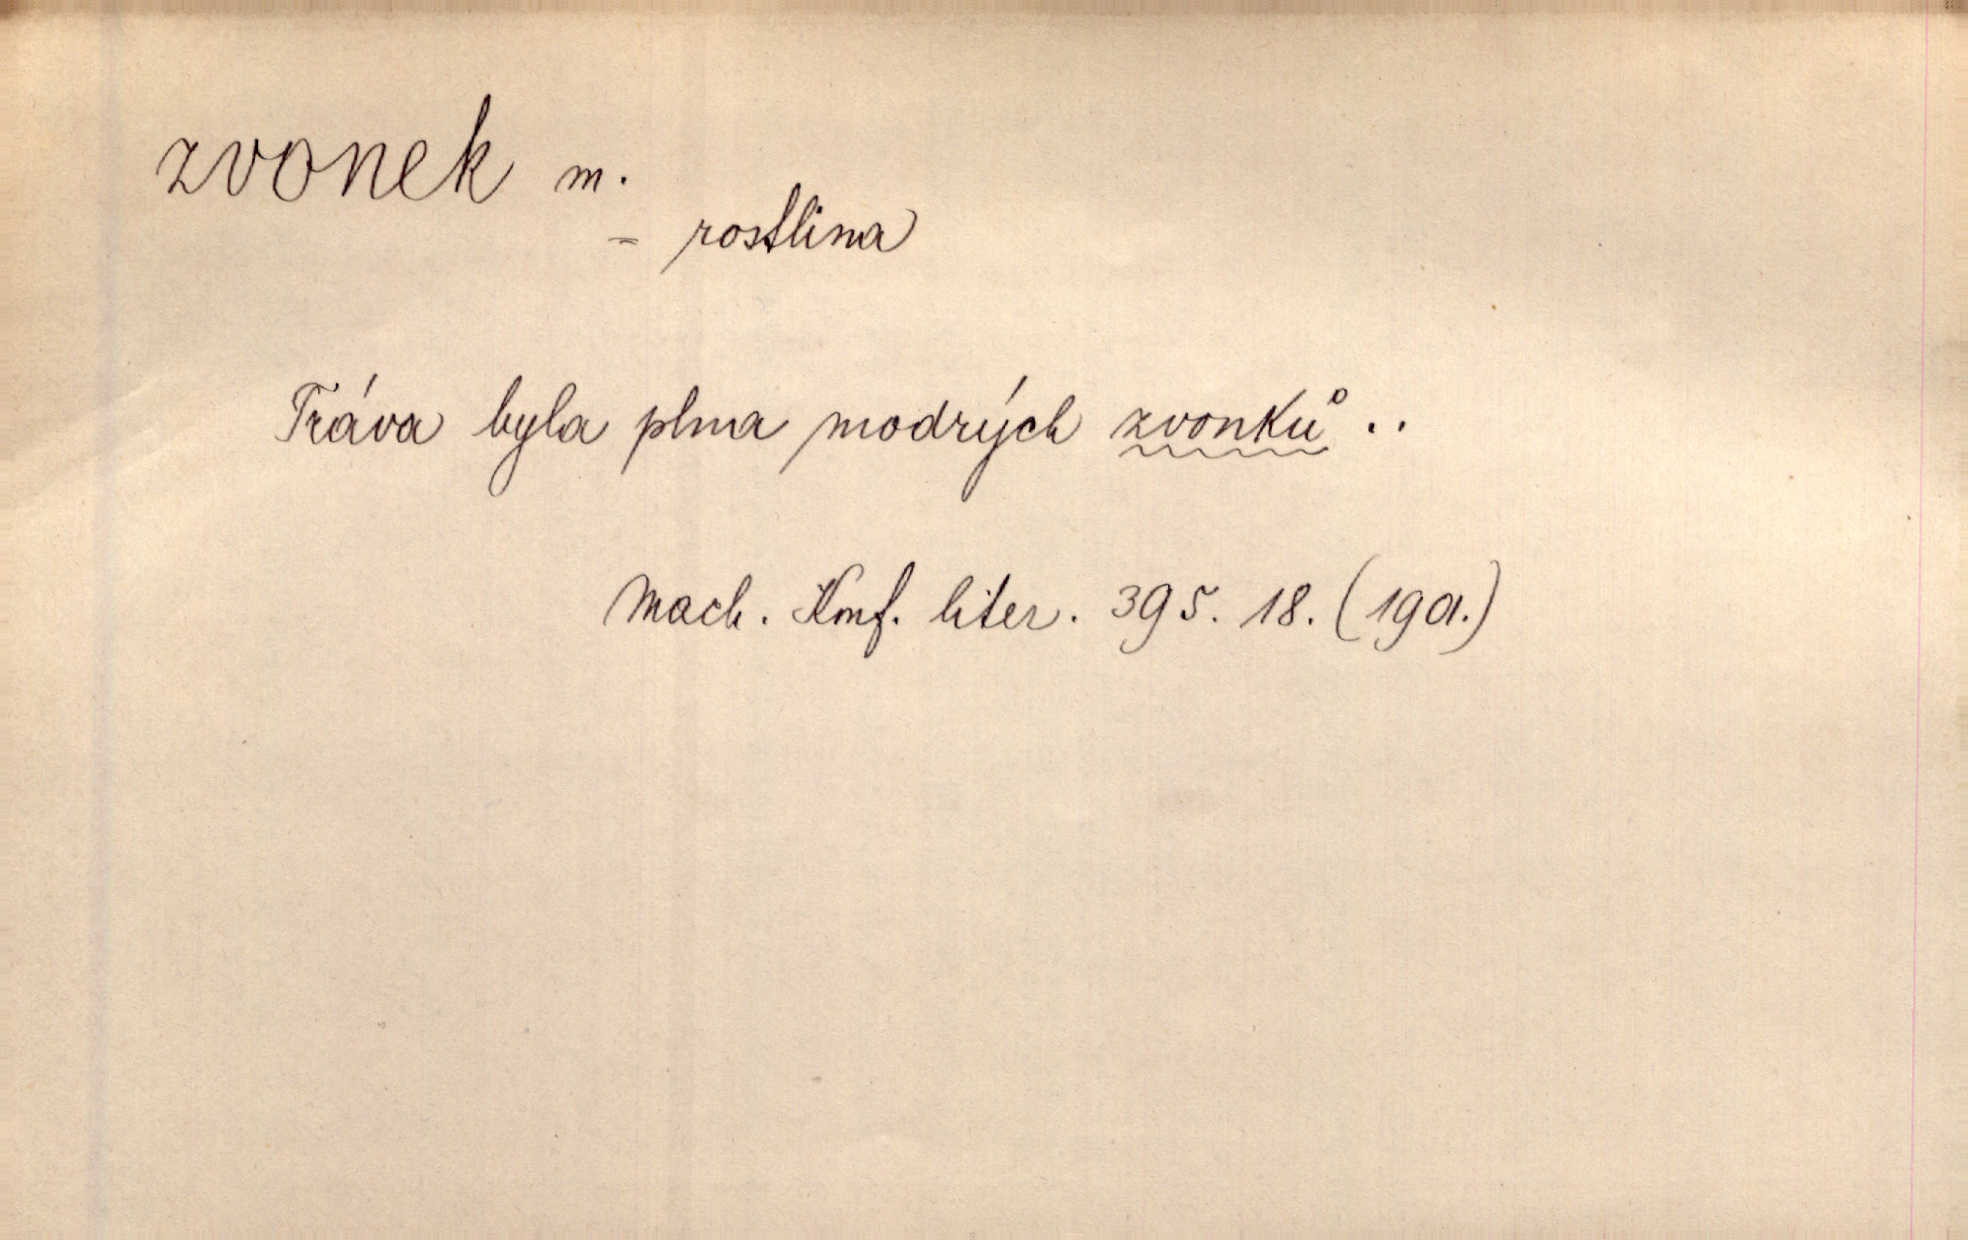 zvonek m.
= rostlina
Tráva byla plna modrých zvonků ..
Mach. Konf. liter. 395. 18. (1901.)